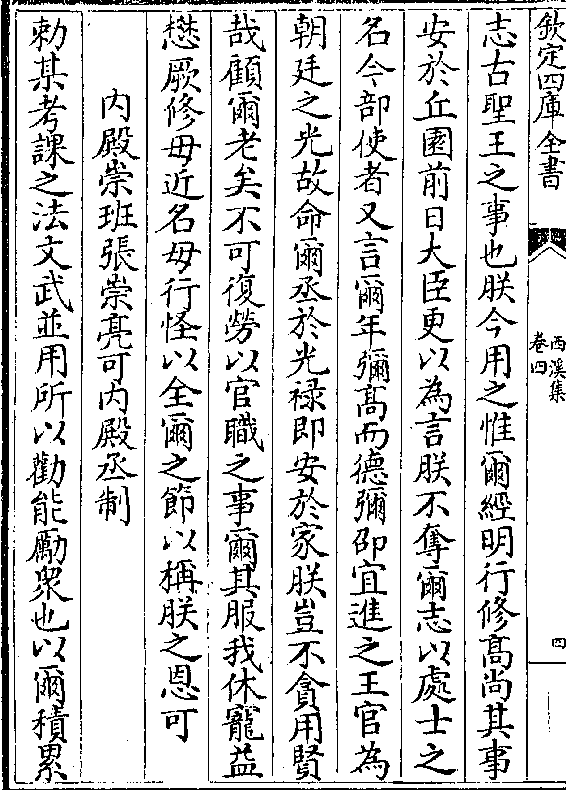 欽定四庫全書
西溪集
卷四
四
志古聖王之事也朕今用之惟爾經明行修高尚其事
安於丘園前日大臣更以為言朕不奪爾志以處士之
名今部使者又言爾年彌高而德彌卲宜進之王官為
朝廷之光故命爾丞於光祿即安於家朕豈不貪用賢
哉顧爾老矣不可復勞以官職之事爾其服我休寵益
懋厥修毋近名毋行怪以全爾之節以稱朕之恩可
內殿崇班張崇亮可內殿丞制
勅某考課之法文武並用所以勸能勵衆也以爾積累